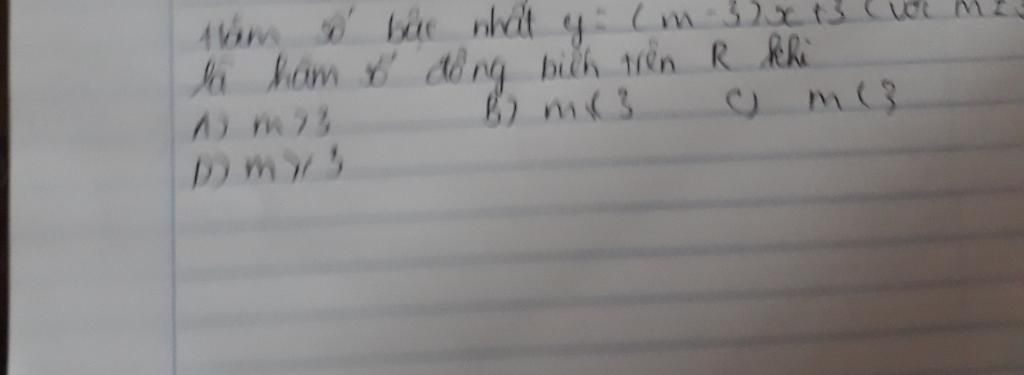 Hàm số bậc nhất y = (m - 3)x + 3 (với m ≠ 3
là hàm số đồng biến trên R khi
A) m > 3 B) m < 3 C) m < 3
D) m ≥ 3